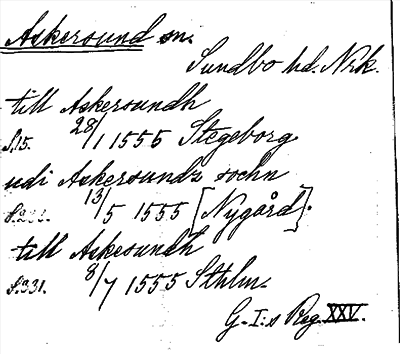 Askersund sn.
Sundbo hd. Nrk.
till Askersundh
S.15. 28/1 1555 Stegeborg
udi Askersunds sochn
13/5 1555 [Nygård].
till Askesundh
S.331. 8/7 1555 Sthlm.
G. I:s Reg. XXV.